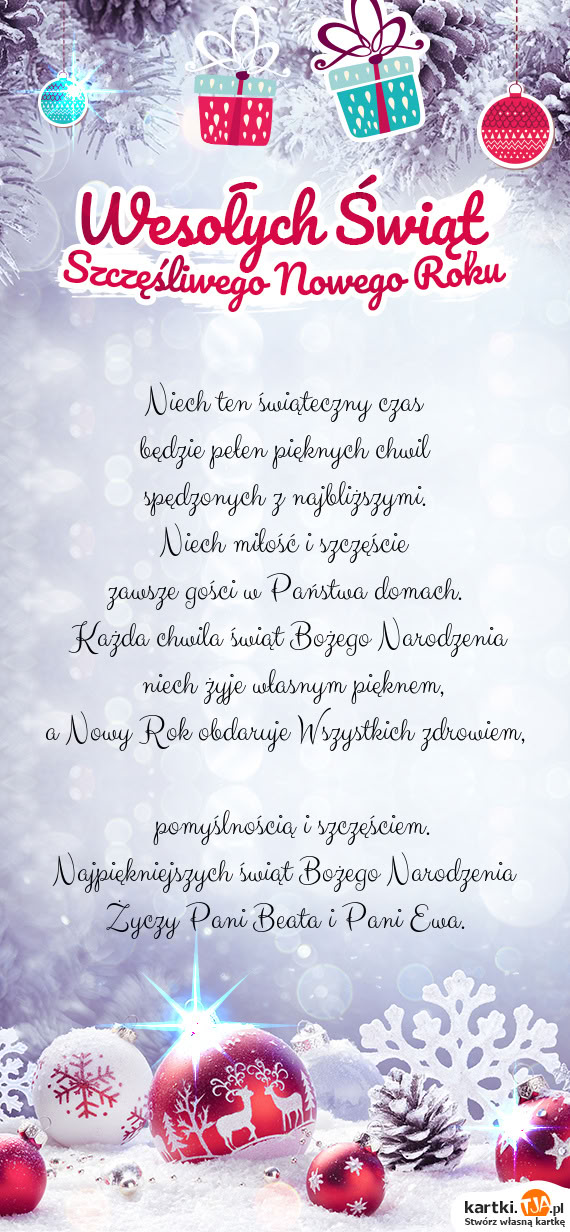 Wesołych Świąt
Szczęśliwego Nowego Roku
Niech ten świąteczny czas
będzie pełen pięknych chwil
spędzonych z najbliższymi.
Niech miłość i szczęście
zawsze gości w Państwa domach.
Każda chwila świąt Bożego Narodzenia
niech żyje własnym pięknem,
a Nowy Rok obdaruje Wszystkich zdrowiem,
pomyślnością i szczęściem.
Najpiękniejszych świąt Bożego Narodzenia
Życzy Pani Beata i Pani Ewa.
kartki.TJA.pl
Stwórz własną kartkę